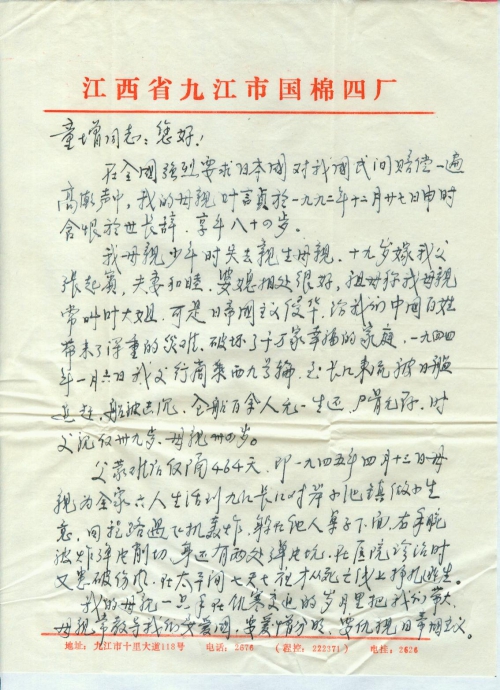 江西省九江市国棉四厂
童增同志：您好！
在全國強烈要求日本國对我國民间赔偿一遍
高潮声中，我的母親叶言貞於一九九二年十二月廿七日申时
含恨於世长辞，享年八十四岁。
我母親少年时失去親生母親，十九岁嫁我父
张起，夫妻和睦，婆媳相处很好，祖母称我母親
常叫叶大姐，可是日帝國主义侵华，给我们中國百姓
带来了深重的灾难，破坏了千万家幸福的家庭，一九四四
年一月六日我父行商乘西九号輪，长江东流被日艇
追赶，船被击沉，全船百余人无一生还，尸骨无踪，时
父親仅卅九岁，母親卅四岁。
父蒙难后仅隔464天，即一九四五年四月十三日母
親为全家六人生活到九江长江对岸小池镇做小生
意，回程路遇飞机轰炸，躲在他人桌子下面，右手腕
被炸弹片削切，身还有两处弹片坑，在医院诊治时
又患破伤风，在太平间七天七夜才从死亡线上挣扎逃生。
我的母親一只手在饥寒交迫的岁月里把我们带大，
母親常教导我们要爱國，要爱憎分明，要仇視日帝國主义。
地址：九江市十里大道118号 电话：2676 （程控：222371） 电挂：2626